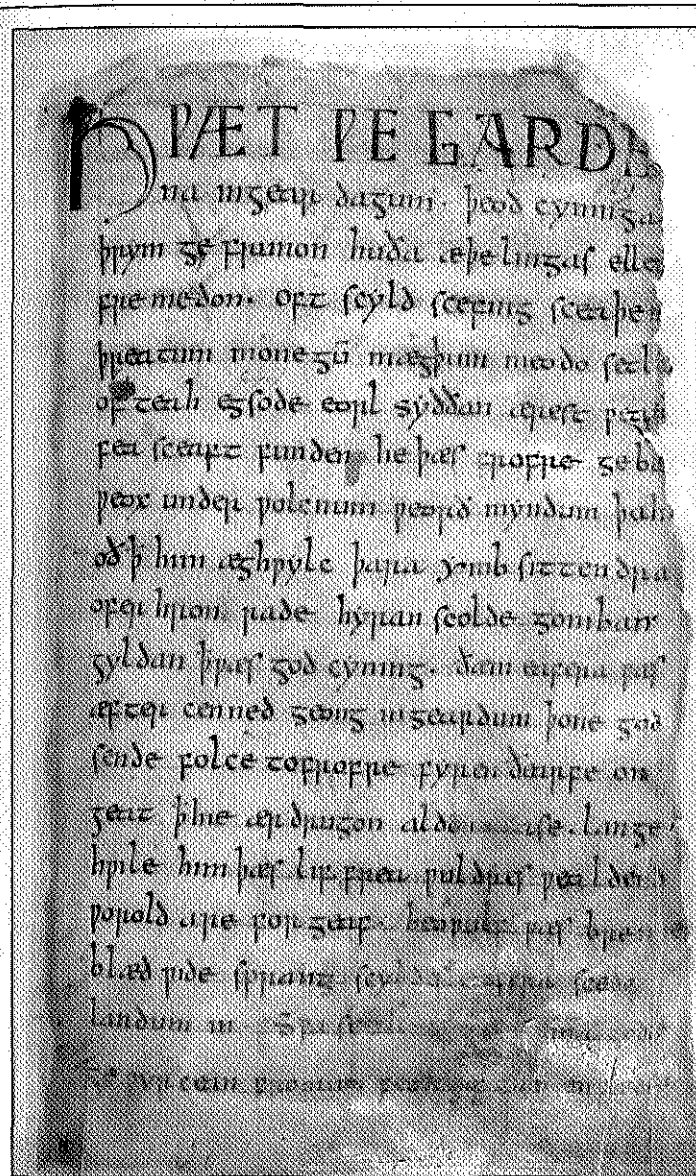 HǷÆT ǷE GARDE
na ingear dagum. þeod cyninga
þrym ge frunon huða æþelingas elle
fremedon. oft scyld scefing sceaþe
þreatum monegū mægþum meodo setla
of teah egsode eorl syððan ærest ƿearð
fea sceaft funden he þæs frofre geba
ƿeox under ƿolcnum ƿeorð myndum þah
oð ꝥ him æghƿylc þara ymb sittendra
ofer hron rade hyran scolde gomban
gyldan ꝥ ƿæs god cyning. ðam eafera ƿæs
æfter cenned geong ingeardum þone god
sende folce tofrofre fyren ðearfe on
geat ꝥ hie ær drugon lange
hƿile him þæs lif frea ƿuldres ƿealdend
ƿorold are for geaf. beoƿulf ƿæs breme
blæd ƿide sprang scyldes eafera scede
landum in